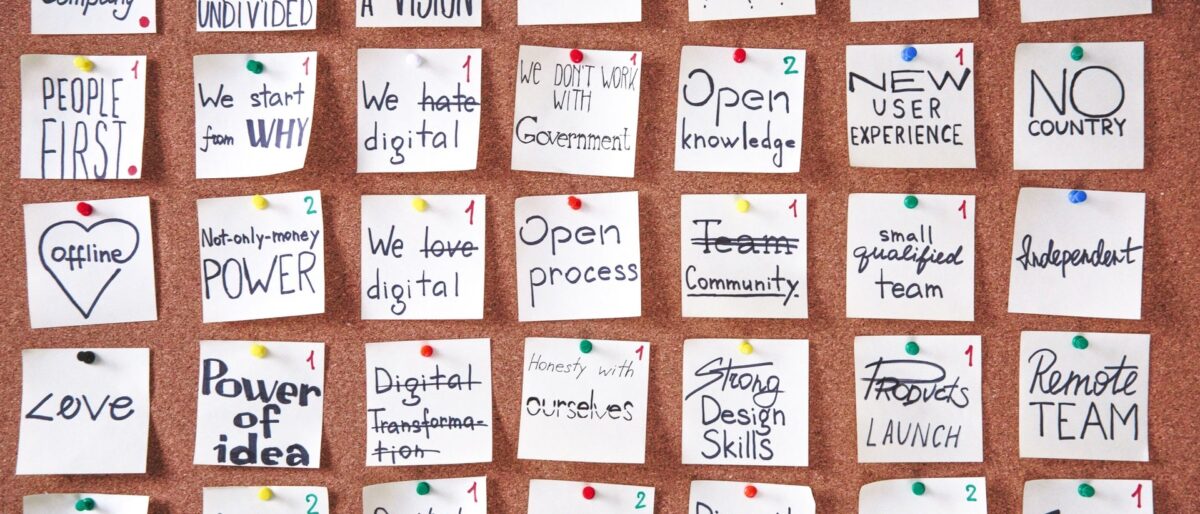 Company
UNDIVIDED
A VISION
PEOPLE
FIRST
1
We start
from WHY
1
We hate
digital
1
We DON'T WORK
WITH
Government
1
Open
knowledge
2
NEW
USER
EXPERIENCE
1
NO
COUNTRY
offline
Not-only-money
POWER
2
We love
digital
1
Open
process
Team
Community.
1
small
qualified
team
1
Independent
Love
Power
of
idea
1
Digital
Transforma-
tion
Honesty with
ourselves
1
Strong
Design
Skills
Products
LAUNCH
1
Remote
TEAM
2
1
2
2
1